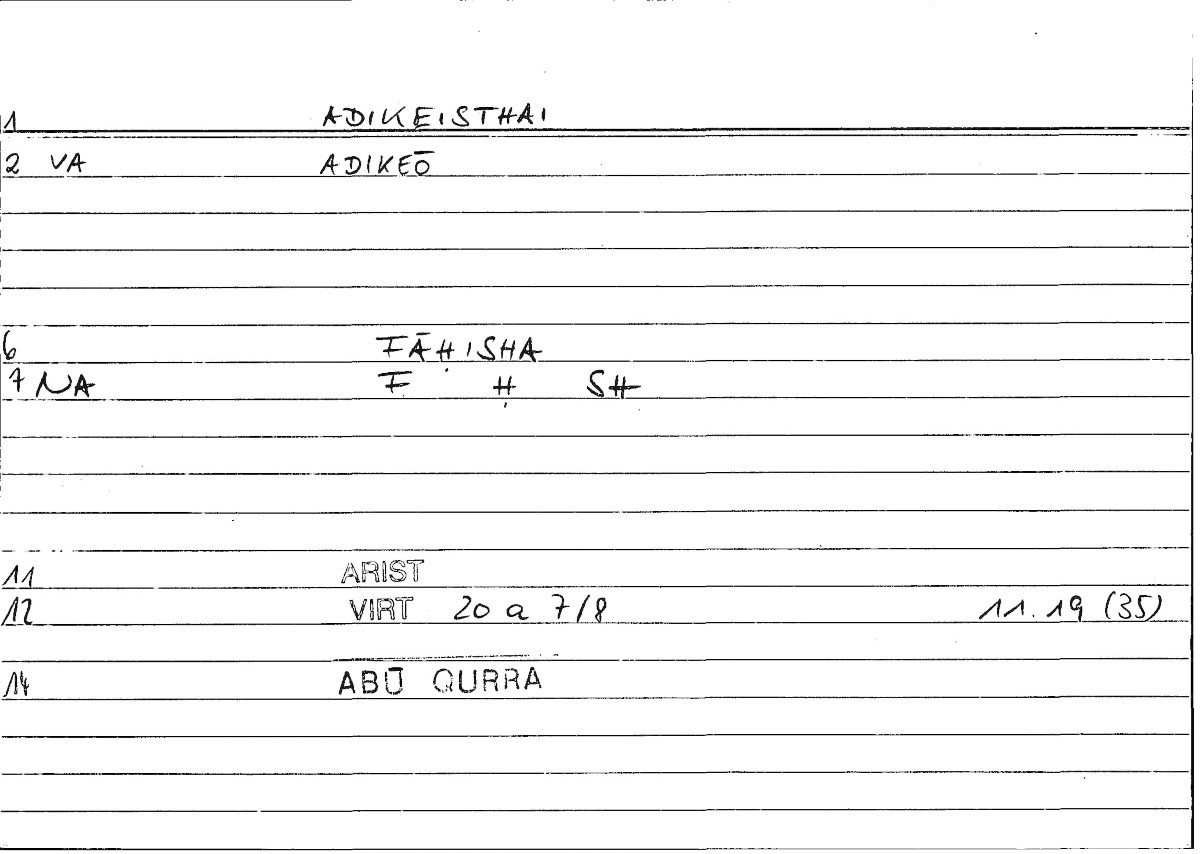 1 ADIKEISTHAI
2 VA ADIKEŌ
6 FĀḤISHA
7 NA F Ḥ SH
11 ARIST
12 VIRT 20 a 7/8 11.19 (35)
14 ABŪ QURRA